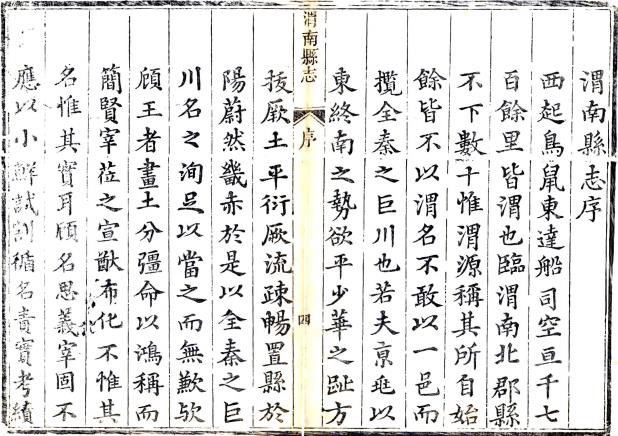 渭南縣志序
西起鳥鼠東達船司空亘千七
百餘里皆渭也臨渭南北郡縣
不下數十惟渭源稱其所自始
餘皆不以渭名不敢以一邑而
攬全秦之巨川也若夫亰以
東終南之勢欲平少華之趾方
渭南縣志 序 四
拔厥土平衍厥流疎暢置縣於
陽蔚然畿赤於是以全秦之巨
川名之洵足以當之而無歉
顧王者畫土分彊命以鴻稱而
簡賢宰莅之宣猷布化不惟其
名惟其實耳顧名思義宰固不
應以小鮮試割循名責實考績